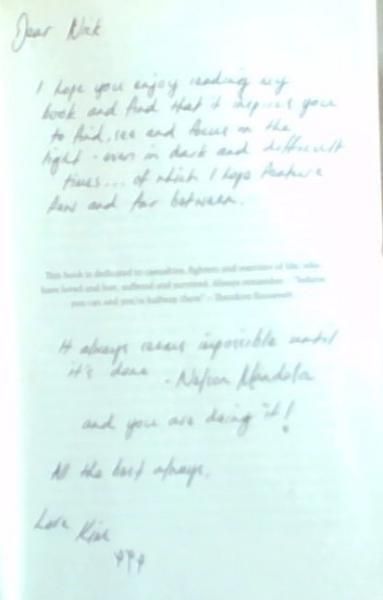 Dear Nick
I hope you enjoy reading my
book and find that it inspires you
to find, see and focus on the
light - even in dark and difficult
times... of which I hope feature
few and far between.
This book is dedicated to casualties, fighters and survivors of life, who
have loved and lost, suffered and survived. Always remember - "believe
you can and you're halfway there" - Theodore Roosevelt
It always seems impossible until
it's done - Nelson Mandela
and you are doing it!
All the best always,
Love